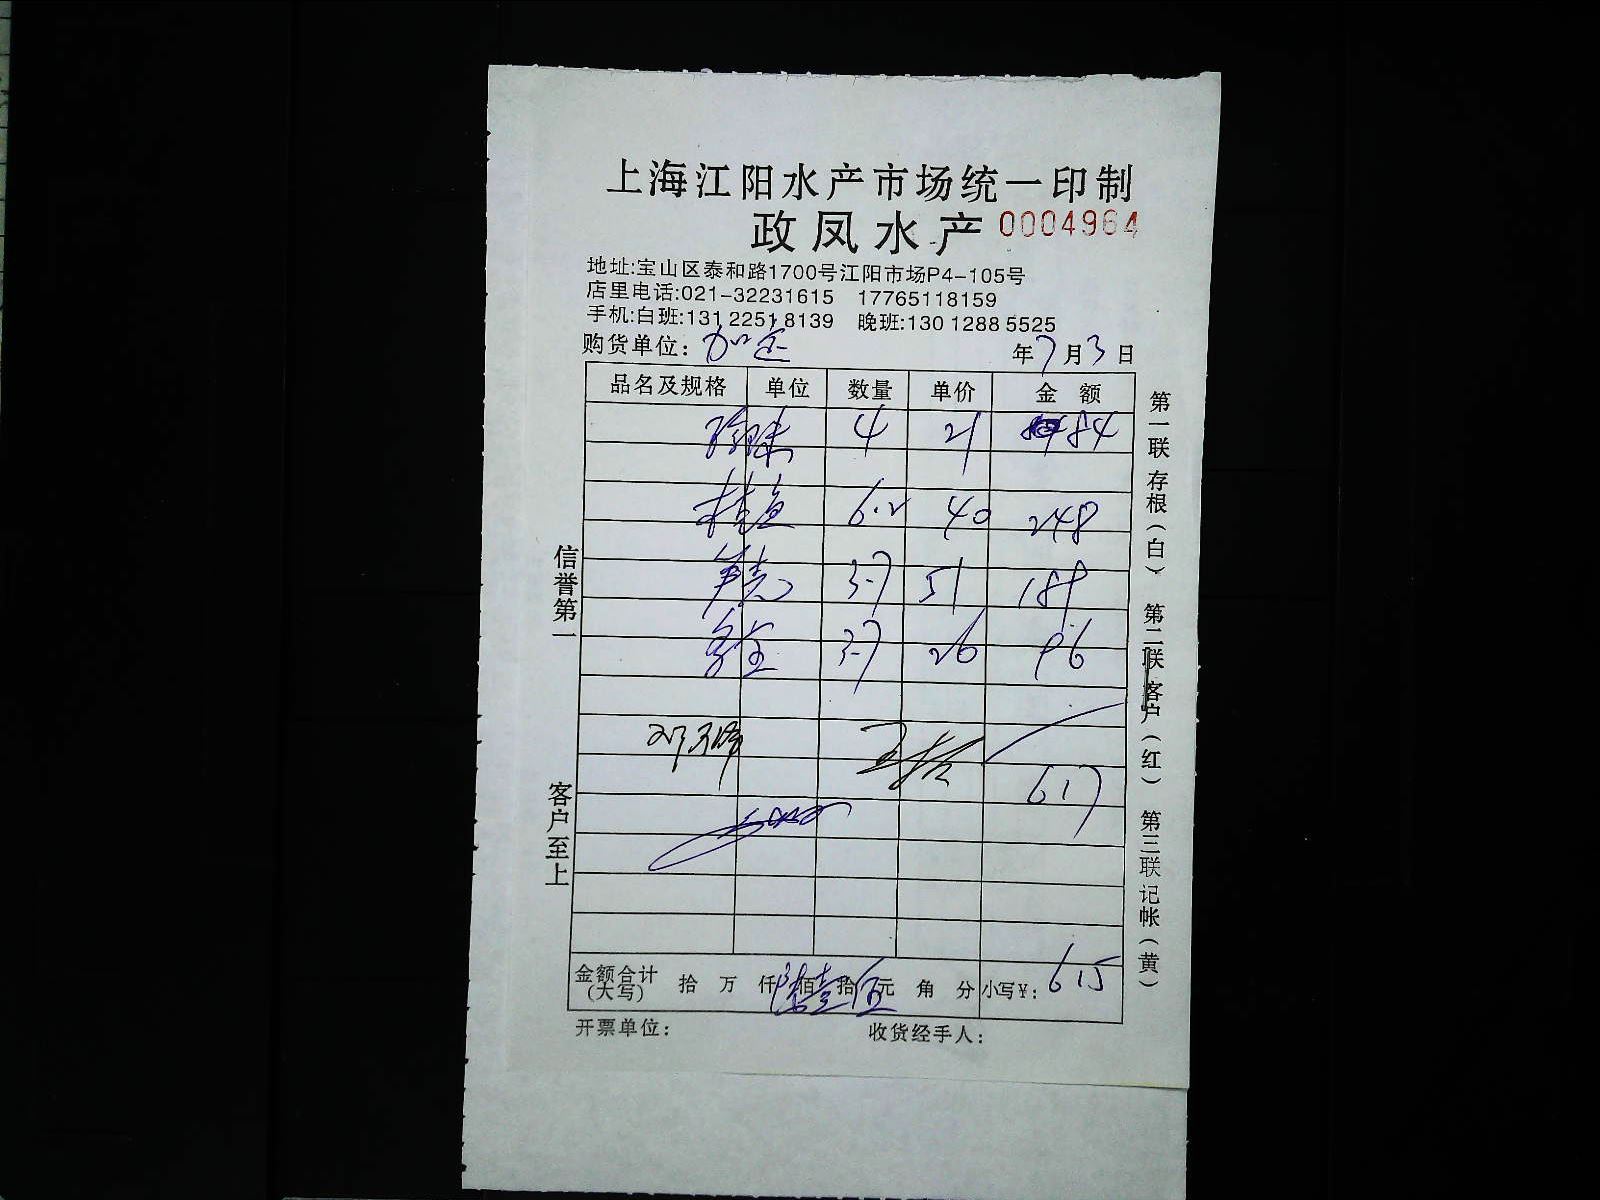 上海江阳水产市场统一印制
政凤水产 0004964
地址:宝山区泰和路1700号江阳市场P4-105号
店里电话:021-32231615 17765118159
手机:白班:131 2251 8139 晚班:130 1288 5525
购货单位: 年7月3日
品名及规格 单位 数量 单价 金额
4 21 84
桂鱼 6.2 40 248
3.7 51 189
3.7 26 96
617
金额合计(大写) 拾 万 仟 陆佰壹拾伍元 角 分 小写¥: 615
开票单位: 收货经手人:
信誉第一
客户至上
第一联 存根(白) 第二联 客户(红) 第三联 记帐(黄)